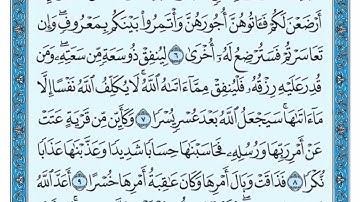 أَرْضَعْنَ لَكُمْ فَـَٔاتُوهُنَّ أُجُورَهُنَّ وَأْتَمِرُوا۟ بَيْنَكُم بِمَعْرُوفٍۢ ۖ وَإِن
تَعَاسَرْتُمْ فَسَتُرْضِعُ لَهُۥٓ أُخْرَىٰ ٦ لِيُنفِقْ ذُو سَعَةٍۢ مِّن سَعَتِهِۦ ۖ وَمَن
قُدِرَ عَلَيْهِ رِزْقُهُۥ فَلْيُنفِقْ مِمَّآ ءَاتَىٰهُ ٱللَّهُ ۚ لَا يُكَلِّفُ ٱللَّهُ نَفْسًا إِلَّا
مَآ ءَاتَىٰهَا ۚ سَيَجْعَلُ ٱللَّهُ بَعْدَ عُسْرٍۢ يُسْرًۭا ٧ وَكَأَيِّن مِّن قَرْيَةٍ عَتَتْ
عَنْ أَمْرِ رَبِّهَا وَرُسُلِهِۦ فَحَاسَبْنَٰهَا حِسَابًۭا شَدِيدًۭا وَعَذَّبْنَٰهَا عَذَابًۭا
نُّكْرًۭا ٨ فَذَاقَتْ وَبَالَ أَمْرِهَا وَكَانَ عَٰقِبَةُ أَمْرِهَا خُسْرًا ٩ أَعَدَّ ٱللَّهُ